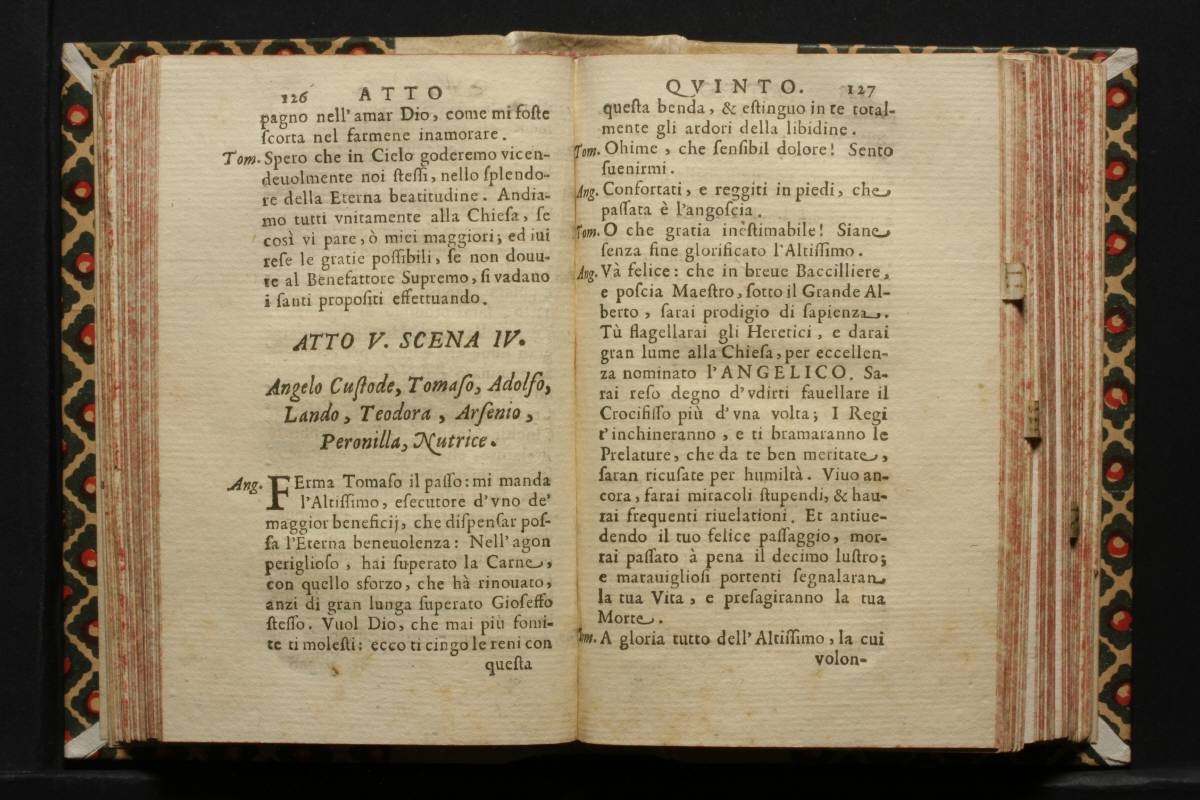 126 ATTO
pagno nell'amar Dio, come mi foſte
ſcorta nel farmene inamorare.
Tom. Spero che in Cielo goderemo vicen-
deuolmente noi ſteſſi, nello ſplendo-
re della Eterna beatitudine. Andia-
mo tutti vnitamente alla Chieſa, ſe
così vi pare, ò miei maggiori; ed iui
reſe le gratie poſſibili, ſe non douu-
te al Benefattore Supremo, ſi vadano
i ſanti propoſiti effettuando.
ATTO V. SCENA IV.
Angelo Cuſtode, Tomaſo, Adolfo,
Lando, Teodora, Arſenio,
Peronilla, Nutrice.
Ang. FErma Tomaſo il paſſo: mi manda
l'Altiſſimo, eſecutore d'vno de'
maggior beneficij, che diſpenſar poſ-
ſa l'Eterna beneuolenza: Nell'agon
periglioſo, hai ſuperato la Carne,
con quello sforzo, che hà rinouato,
anzi di gran lunga ſuperato Gioſeffo
ſteſſo. Vuol Dio, che mai più fomi-
te ti moleſti: ecco ti cingo le reni con
queſta
QVINTO. 127
queſta benda, & eſtinguo in te total-
mente gli ardori della libidine.
Tom. Ohime, che ſenſibil dolore! Sento
ſuenirmi.
Ang. Confortati, e reggiti in piedi, che
paſſata è l'angoſcia.
Tom. O che gratia ineſtimabile! Siane
ſenza fine glorificato l'Altiſſimo.
Ang. Và felice: che in breue Baccilliere,
e poſcia Maeſtro, ſotto il Grande Al-
berto, ſarai prodigio di ſapienza.
Tù flagellarai gli Heretici, e darai
gran lume alla Chieſa, per eccellen-
za nominato l'ANGELICO. Sa-
rai reſo degno d'vdirti fauellare il
Crocifiſſo più d'vna volta; I Regi
t'inchineranno, e ti bramaranno le
Prelature, che da te ben meritate,
ſaran ricuſate per humiltà. Viuo an-
cora, farai miracoli ſtupendi, & hau-
rai frequenti riuelationi. Et antiue-
dendo il tuo felice paſſaggio, mor-
rai paſſato à pena il decimo luſtro;
e marauiglioſi portenti ſegnalaran
la tua Vita, e preſagiranno la tua
Morte.
Tom. A gloria tutto dell'Altiſſimo, la cui
volon-